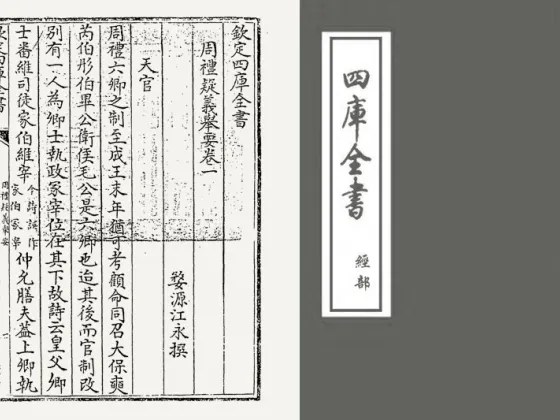 四庫全書
經部
欽定四庫全書
周禮疑義舉要卷一
婺源江永撰
天官
周禮六卿之制至成王末年猶可考顧命同召大保奭
芮伯彤伯畢公衛侯毛公是六卿也迨其後而官制改
别有一人為卿士執政冢宰位在其下故詩云皇父卿
士番維司徒家伯維宰今詩誤作家伯冢宰仲允膳夫蓋上卿執
欽定四庫全書
周禮疑義舉要